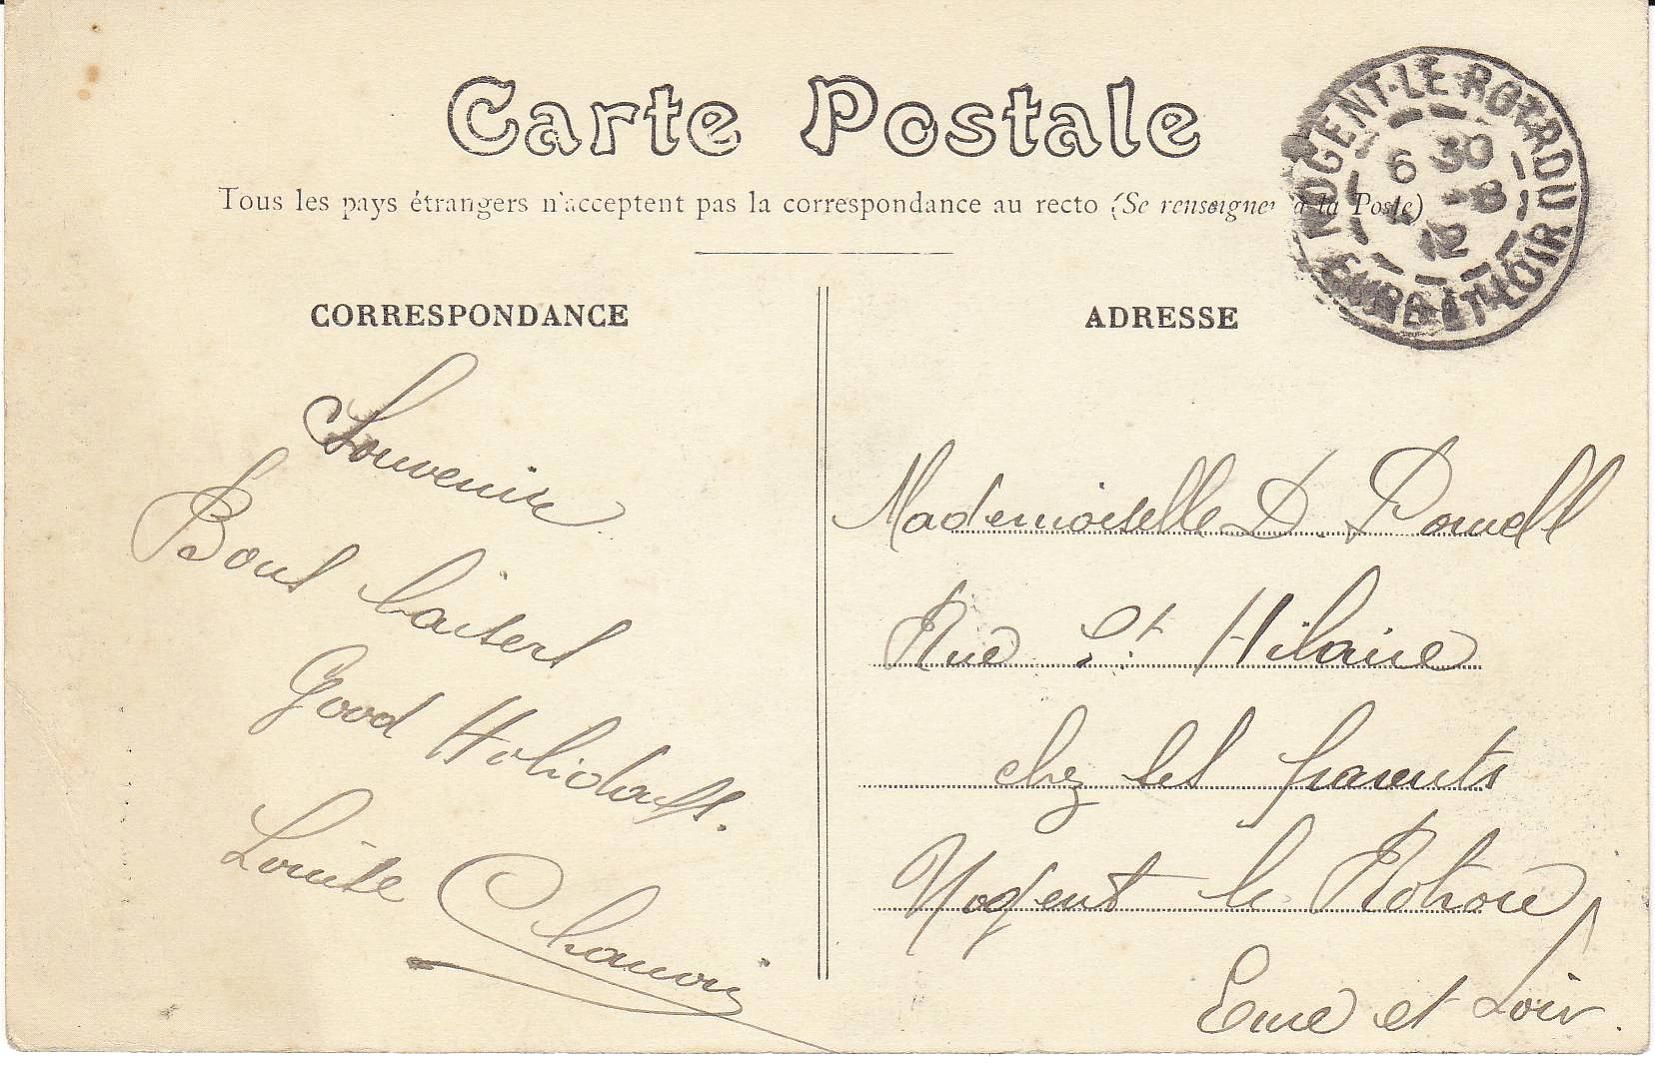 Carte Postale
Tous les pays étrangers n'acceptent pas la correspondance au recto (Se renseigner à la Poste)
NOGENT-LE-ROTROU
6 30
-8
12
EURE-ET-LOIR
CORRESPONDANCE
Souvenir
Bons baisers
Good Holidays.
Louise Chauvin
ADRESSE
Mademoiselle D. Powell
Rue St Hilaire
chez ses parents
Nogent le Rotrou
Eure et Loir.